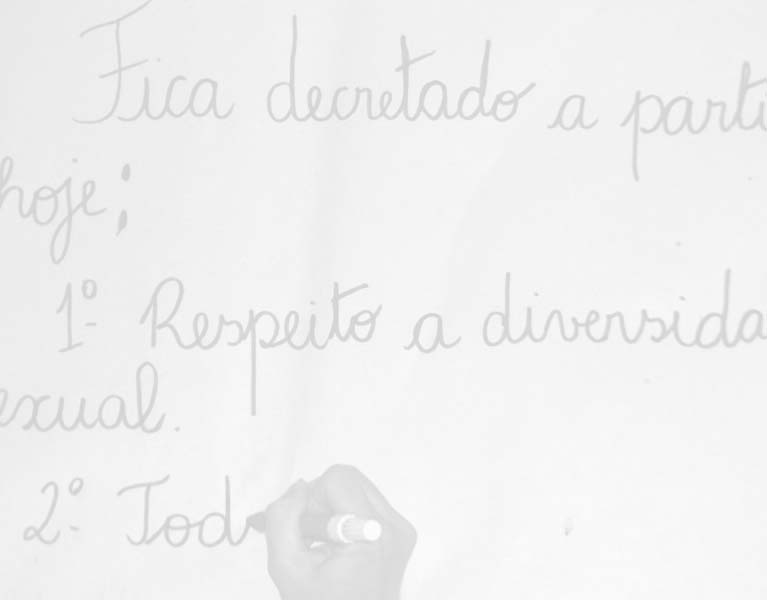 Fica decretado a parti
hoje;
1º Respeito a diversida
exual.
2º Tod